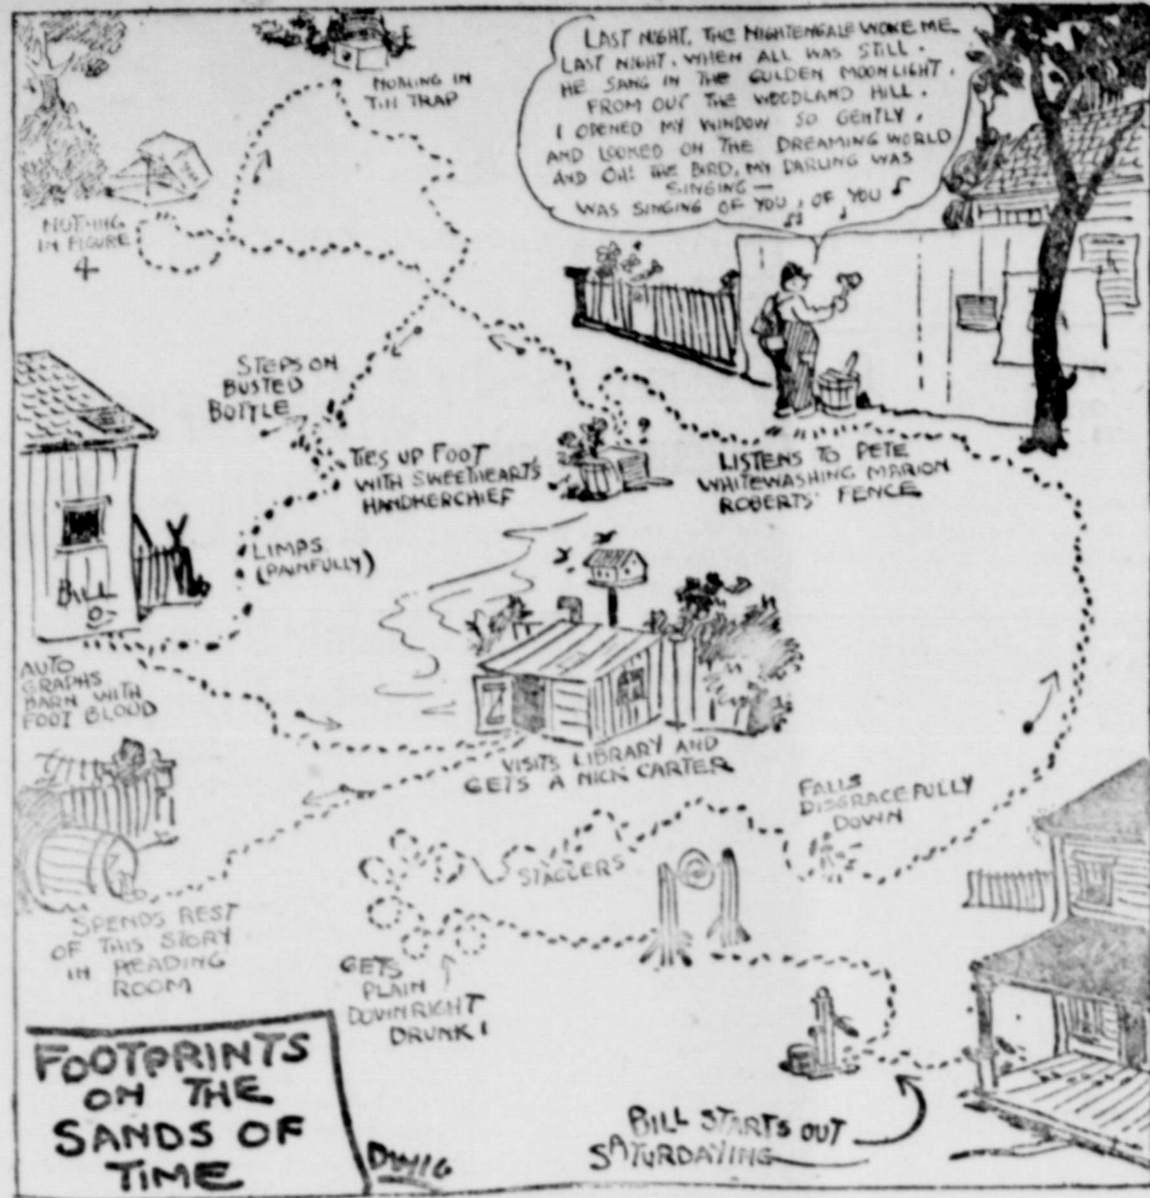 LAST NIGHT, THE NIGHTENGALE WOKE ME
LAST NIGHT, WHEN ALL WAS STILL.
HE SANG IN THE GOLDEN MOONLIGHT,
FROM OUT THE WOODLAND HILL.
I OPENED MY WINDOW SO GENTLY,
AND LOOKED ON THE DREAMING WORLD
AND OH! THE BIRD, MY DARLING WAS
SINGING—
WAS SINGING OF YOU, OF YOU
NOTHING IN
TIN TRAP
NOTHING
IN FIGURE
4
STEPS ON
BUSTED
BOTTLE
TIES UP FOOT
WITH SWEETHEART'S
HANDKERCHIEF
LISTENS TO PETE
WHITEWASHING MARION
ROBERTS' FENCE
LIMPS
(PAINFULLY)
BILL
AUTO
GRAPHS
BARN WITH
FOOT BLOOD
VISITS LIBRARY AND
GETS A NICK CARTER
FALLS
DISGRACEFULLY
DOWN
STAGGERS
SPENDS REST
OF THIS STORY
IN READING
ROOM
GETS
PLAIN
DOWNRIGHT
DRUNK!
BILL STARTS OUT
SATURDAYING
FOOTPRINTS
ON THE
SANDS OF
TIME
DWIG